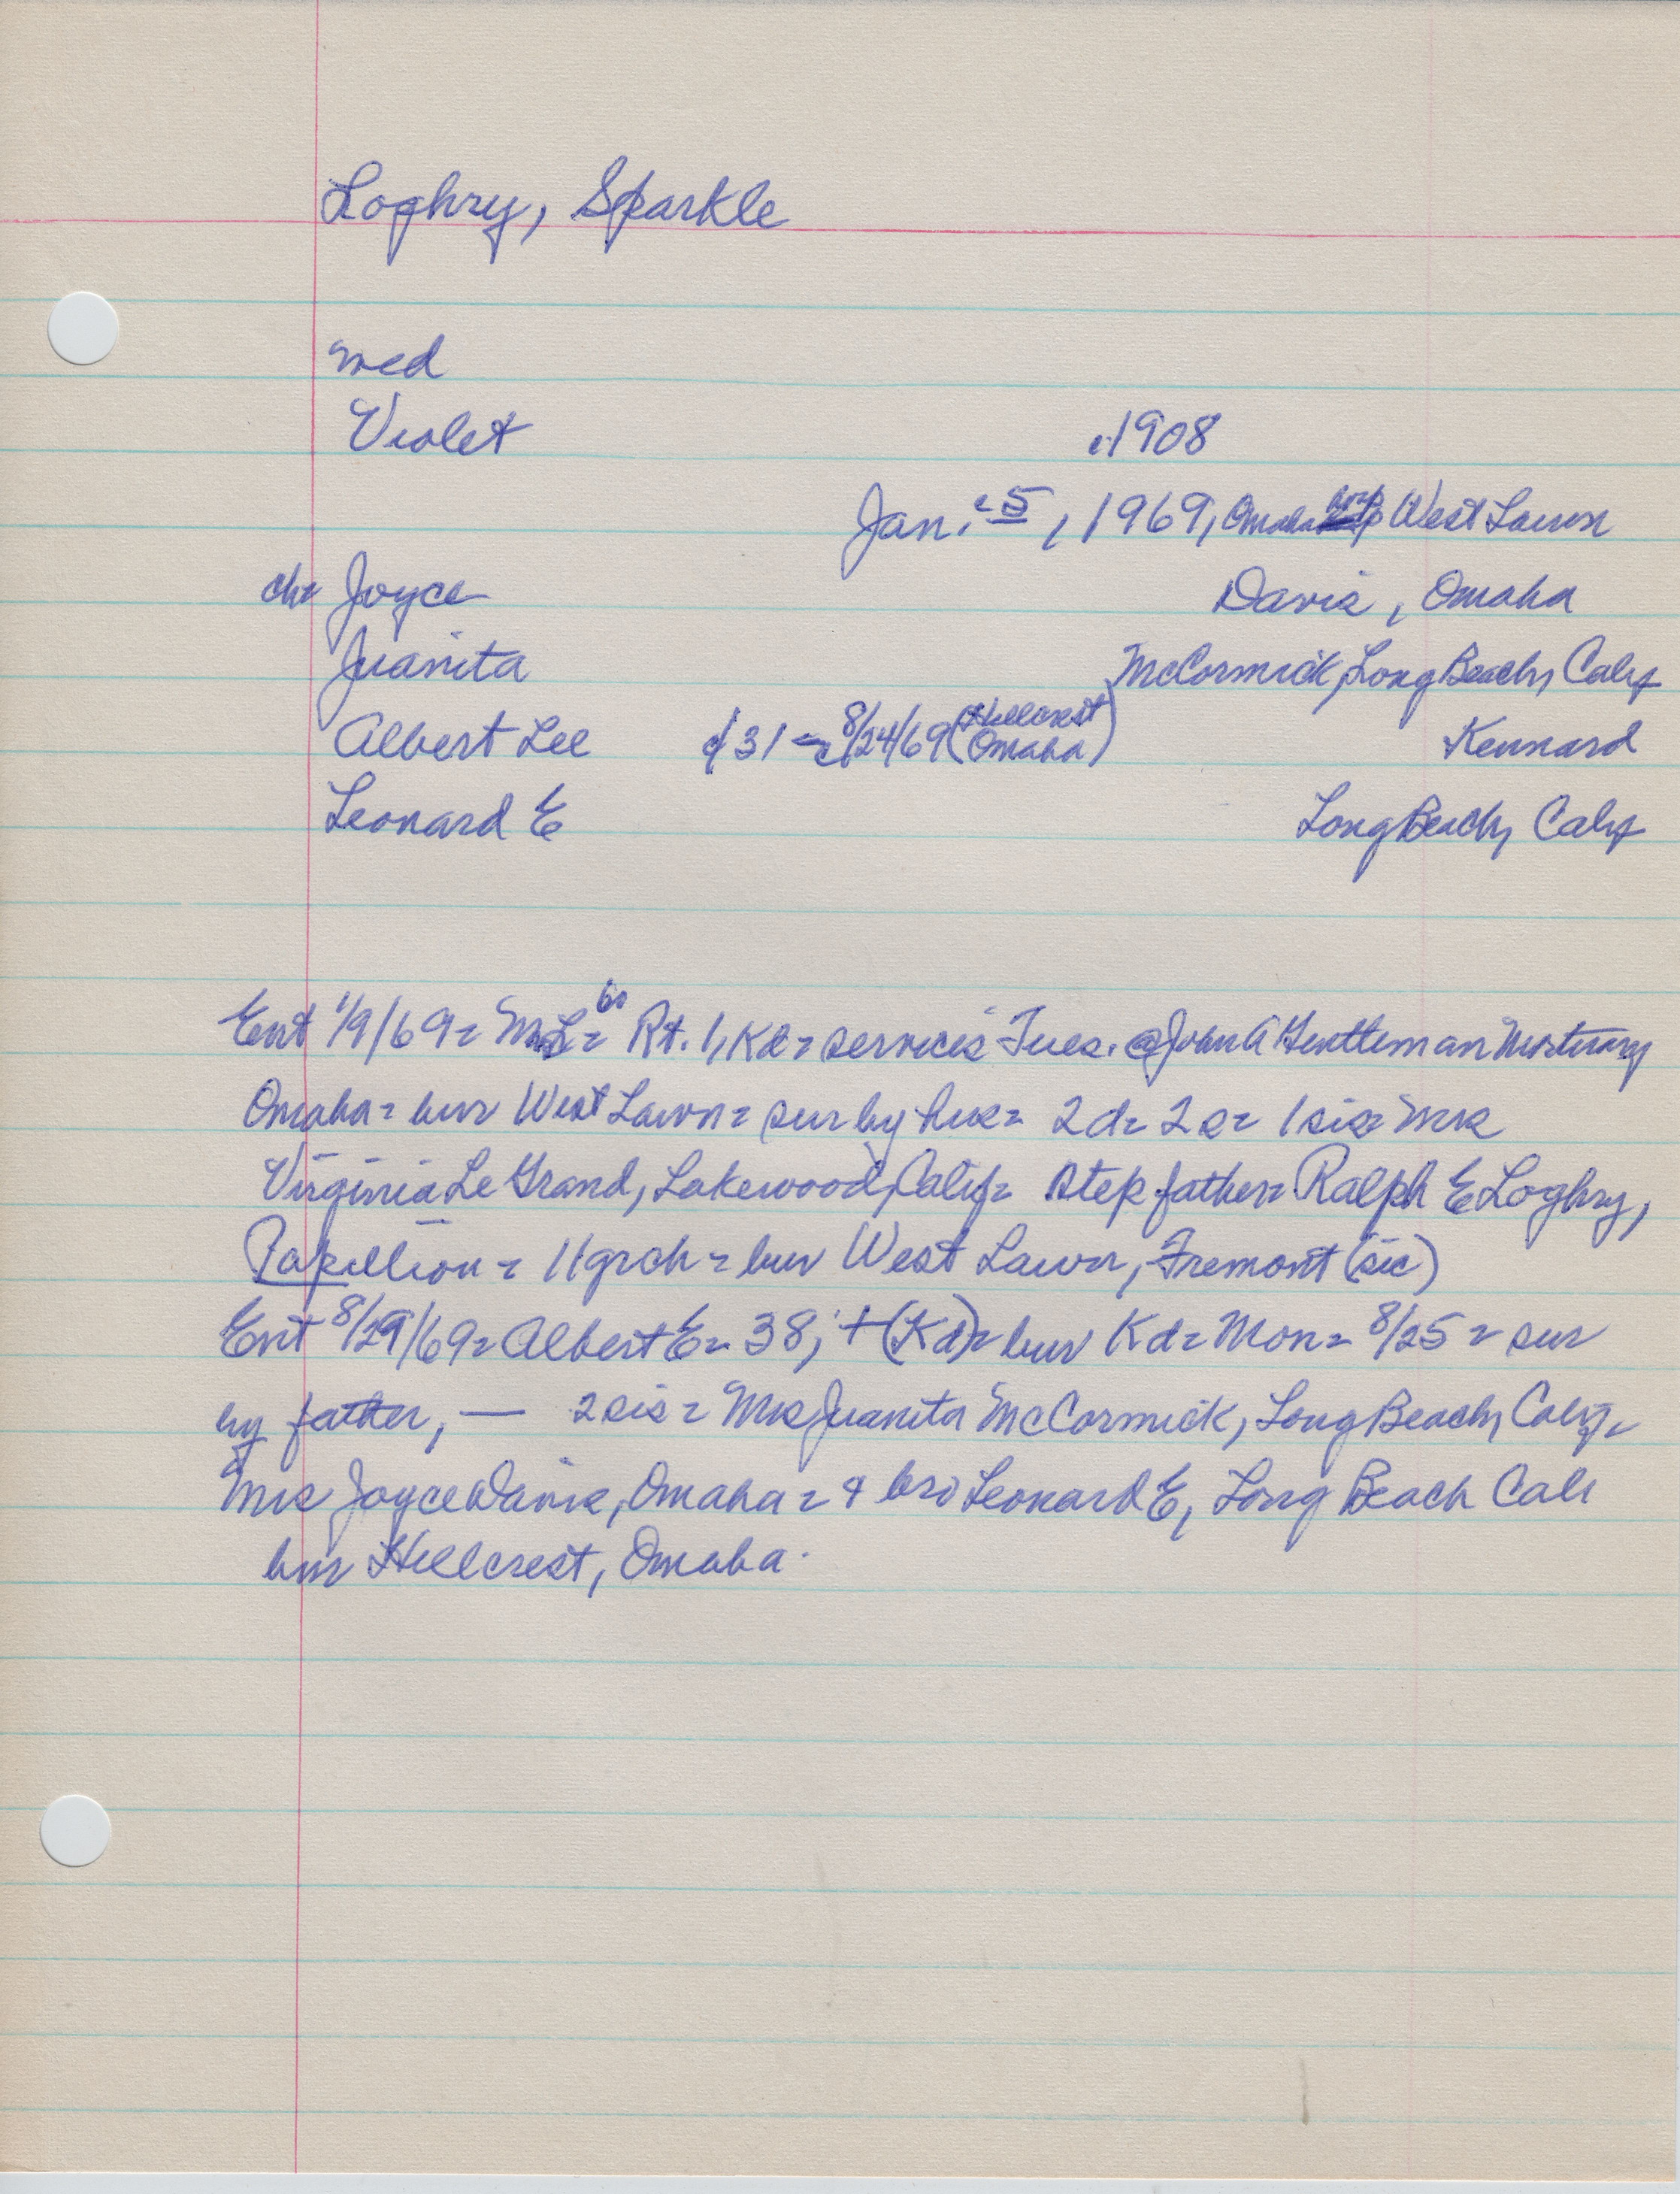 Loghry, Sparkle
med
Violet c1908
Jan. c 5, 1969, Omaha hosp West Lawn
ch= Joyce Davis, Omaha
Juanita McCormick, Long Beach, Calif
Albert Lee c31 - c8/24/69 (Hillcrest Omaha) Kennard
Leonard E Long Beach, Calif
Ent 1/9/69= 60 Rt. 1, Kd= services Tues. @ John A Gentleman Mortuary
Omaha= bur West Lawn= sur by hus= 2d= 2s= 1 sis= Mrs
Virginia Le Grand, Lakewood, Calif= step father= Ralph E Loghry,
Papillion= 11 grch= bur West Lawn, Fremont (sic)
Ent 8/29/69= Albert E= 38, + (Kd)= bur Kd= Mon= 8/25= sur
by father, — 2 sis= Mrs Juanita McCormick, Long Beach, Calif=
Mrs Joyce Davis, Omaha= & bro Leonard E, Long Beach Cali
bur Hillcrest, Omaha.